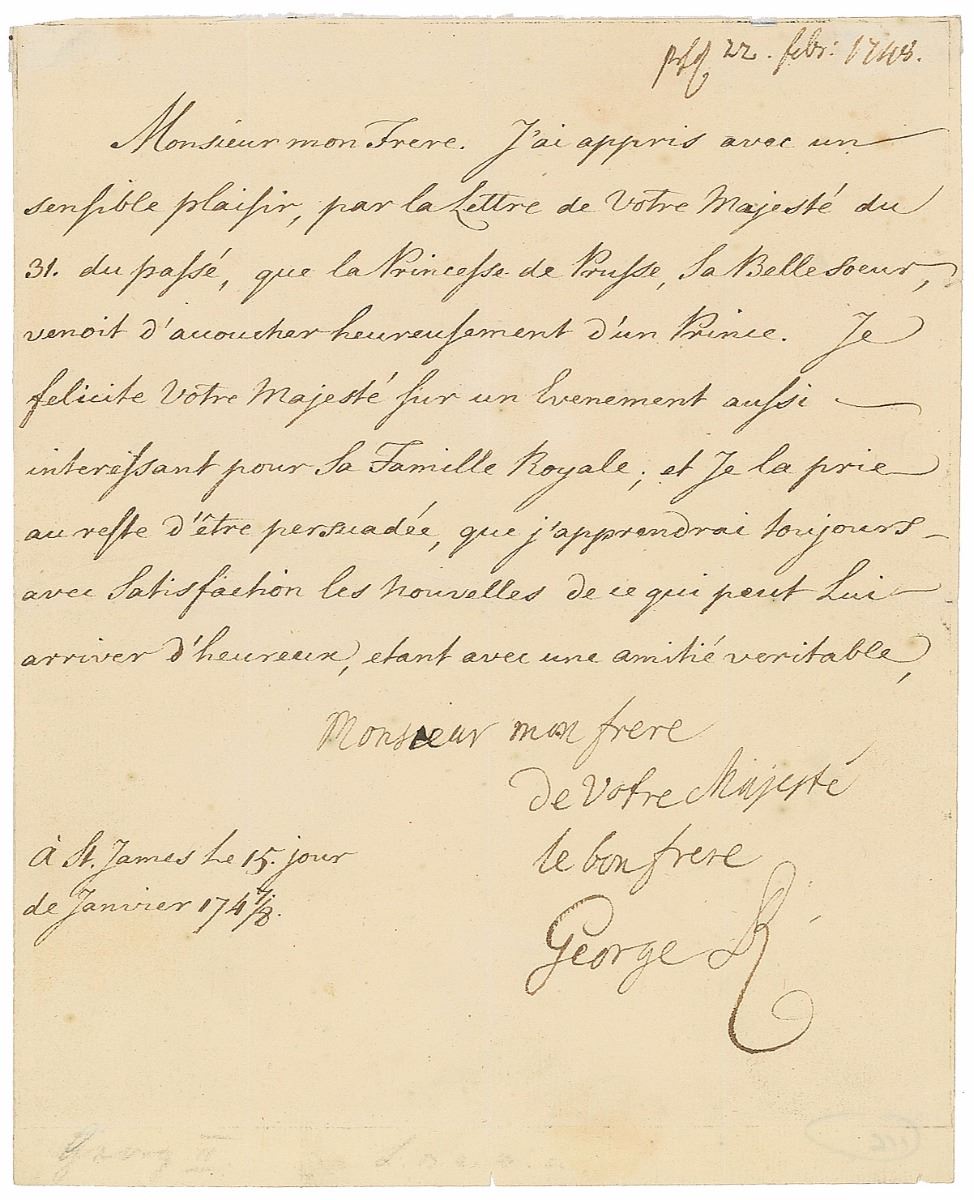 22. febr: 1748.
Monsieur mon Frere. J'ai appris avec un
sensible plaisir, par la Lettre de Votre Majesté du
31. du passé, que la Princesse de Prusse, Sa Belle soeur,
venoit d'acoucher heureusement d'un Prince. Je
felicite Votre Majesté sur un Evenement aussi
interessant pour Sa Famille Royale; et Je la prie
au reste d'être persuadée, que j'apprendrai toujours
avec Satisfaction les Nouvelles de ce qui peut Lui
arriver d'heureux, etant avec une amitié veritable,
Monsieur mon frere
de Votre Majesté
le bon frere
George R
à St. James le 15. jour
de Janvier 174 7/8.